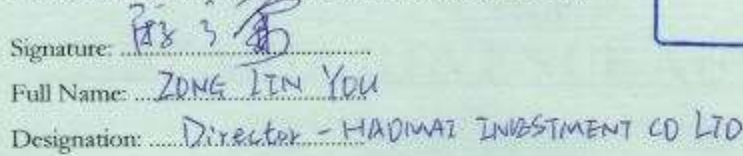 Signature:
Full Name: ZONG LIN YOU
Designation: Director - HAOMAI INVESTMENT CO LTD